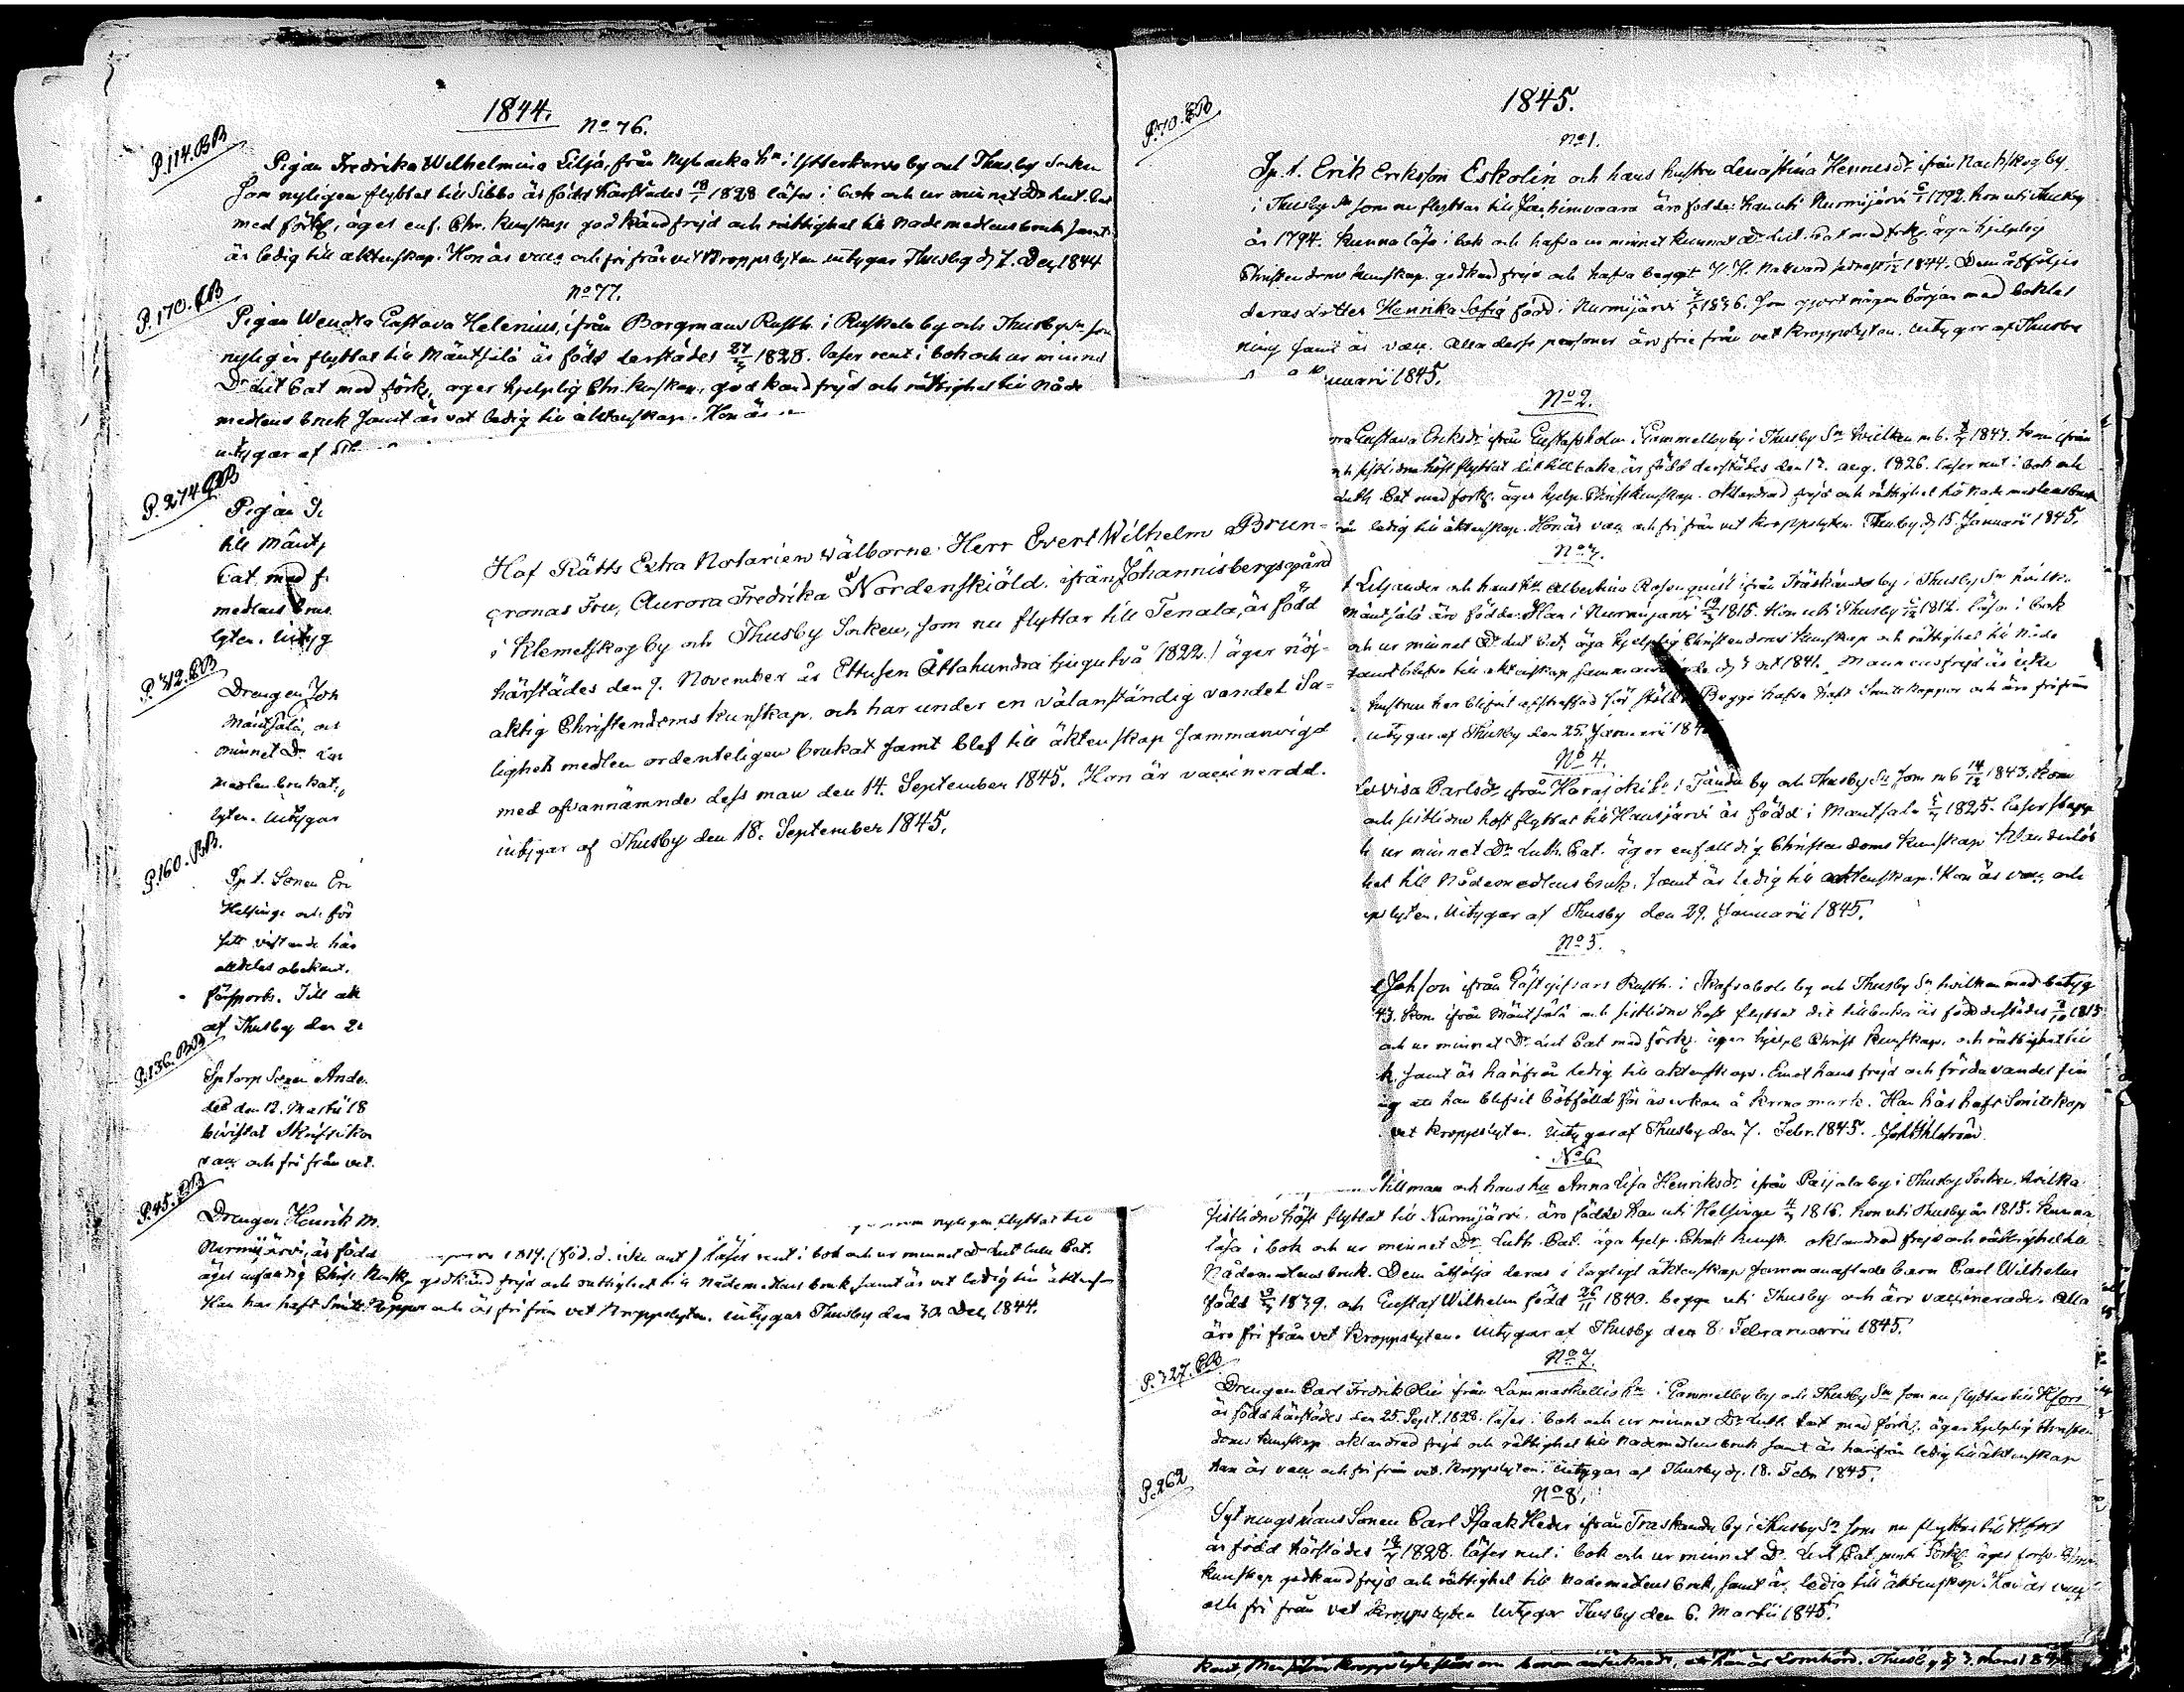 1844.
No 76.
P. 114. BB
Pigan Fredrika Wilhelmina Lilja, från Nybacka hn i Ytterkurve by och Thusby Socken
som nyligen flyttat till Sibbo är född härstädes 18/1 1828 läser i bok och ur minnet Dr Lut. Cat
med förkl, äger enf. Chr. kunskap, godkänd frejd och rättighet till nademedlens bruk samt
är ledig till äktenskap. Hon är vacc. och fri från ven Kroppslyten intygar Thusby d. 7. Dec 1844
No 77.
P. 170. BB
Pigan Wendla Gustava Helenius, ifrån Borgmans Rusth. i Ruskela by och Thusby Sn som
nyligen flyttat till Mäntsälä är född derstädes 1828. läser rent i bok och ur minnet
Dr Lut Cat med förkl, äger hjelplig Chr. kunskap, godkänd frejd och rättighet till nåde
medlens bruk samt är vet ledig till äktenskap. Hon är
intygar af Th
P. 274
Pigan
till Mänts
Cat med f
medlens bruk
lyten. intyg
P. 312. BB
Drengen Joh
Mäntsälä, och
minnet Dr Lut
medlen brukat,
lyten. intygar
P. 160. BB.
Sp t. Sonen Eri
Helsinge och för
sitt vistande här
alldeles obekant.
försports. Till äk
af Thusby den 2
P. 136. BB
Sptorp Sonen Ande
des den 12. Martii 18
bivistat Skriftskol
vacc och fri från vet.
P. 45. BB
Drengen Henrik M.
nyligen flyttat till
Nurmijärvi, är född 1819. (föd. d. icke ant) läser rent i bok och ur minnet Dr Lut lilla Cat.
äger enfaldig Christ. kunsk, godkänd frejd och rättighet till Nådemedlens bruk, samt är vet ledig till äktensk
Han har haft Smittkoppor och är fri från vet Kroppslyten. intygar Thusby den 30. Dec, 1844.
Hof Rätts Extra Notarien Wälborne Herr Evert Wilhelm Brun=
cronas Fru, Aurora Fredrika Nordenskiöld. ifrån Johannisbergs gård
i Klemetskog by och Thusby Socken, som nu flyttar till Tenala, är född
härstädes den 9. November år Ettusen Åttahundra tjugutvå (1822) äger nöj=
aktig Christendoms kunskap, och har under en välanständig vandel Sa=
lighets medlen ordenteligen brukat samt blef till äktenskap sammanvigd
med ofvannämnde dess man den 14. September 1845. Hon är vaccinerad.
intygar af Thusby den 18. September 1845.
1845.
P. 70. BB
No 1.
Sp. t. Erik Eriksson Eskolin och hans hustru Lena Stina Hennesdr ifrån Nachskog by
i Thusby Sn som nu flyttar till Joachimvaara äro födde: han uti Nurmijärvi 1792. hon uti Thusby
år 1794. kunna läsa i bok och hafva ur minnet kunnat Dr Lut. Cat med förkl. äga hjelplig
Christendoms kunskap, godkänd frejd och hafva begge H. H. Nattvard sednast 1844. Dem åtföljer
deras dotter Henrika Sofia född i Nurmijärvi 1836. som gjort någon början med boklas
ning samt är vacc. alla dessa personer äro frie från vet kroppslyten. intygar af Thusby
uarii 1845.
No 2.
Gustava Eriksdr ifrån Gustafsholm i Gammelby by i Thusby Sn hvilken m. b. 1843. kom ifrån
och sistlidne höst flyttat dit tillbaka, är född derstädes den 17. aug. 1826. läser rent i bok och
Luth. Cat med förkl. äger hjelp. Christ. kunskap. oklandrad frejd och rättighet till Nademedlens bruk
ledig till äktenskap. Hon är vacc. och fri från vet kroppslyten Thusby d. 15. Januarii 1845.
No 3.
Liljander och hans hu Albertina Rosenquist ifrån Träskända by i Thusby Sn hvilk.
Mäntsälä äro födde: Han i Nurmijärvi 1815. Hon uti Thusby 1812. läsa i bok
och ur minnet Dr Lut Cat, äga hjelplig Christendoms kunskap och rättighet till Nåde
samt blefvo till äktenskap sammanvigde d. 3 oct 1841. Mannens frejd är icke
hustrun har blifvit afstraffad för stöld. Begge hafva haft Smittkoppor och äro fri från
intygar af Thusby den 25. Januarii 184
No 4.
Lovisa Carlsdr ifrån Harajoki hn i Tandu by och Thusby Sn som m. b. 14/12 1843. kom
och sistlidne höst flyttat till Hausjärvi är född i Mäntsälä 1825. läser
ur minnet Dr Luth. Cat. äger enfaldig Christendoms kunskap
het till Nådemedlens bruk, samt är ledig till äktenskap. Hon är vacc. och
ps lyten. intygar af Thusby den 29. Januarii 1845.
No 5.
Johsson ifrån Gästgifvars Rusth. i Skafvaböle by och Thusby Sn hvilken med betyg
43. kom ifrån Mäntsälä och sistlidne höst flyttat dit tillbaka är född derstädes 1815
och ur minnet Dr Lut Cat med förkl. äger hjelpl Christ kunskap, och rättighet till
k. samt är härifrån ledig till äktenskap. Emot hans frejd och förda vandel fin
att han blifvit bötfälld för åverkan å krono mark. Han har haft Smittkop
vet kroppslyten. intygar af Thusby den 7. Febr. 1845. Joh. Ahlström
No 6
Tillman och hans hu Anna Lisa Henriksdr ifrån Paijala by i Thusby Socken, hvilka
sistlidne höst flyttat till Nurmijärvi, äro födde han uti Helsinge 1816. hon uti Thusby år 1815. kunna
läsa i bok och ur minnet Dr Luth. Cat. äga hjelp. Christ kunsk. oklandrad frejd och rättighet till
Nådemedlens bruk. Dem åtfölja deras i lagligt äktenskap sammanaflade barn Carl Wilhelm
född 1839. och Gustaf Wilhelm född 26/11 1840. begge uti Thusby och äro vaccinerade. Alla
äro fri från vet kroppslyten. intygar af Thusby den 8. Februarii 1845.
No 7.
P. 327. BB
Drengen Carl Fredrik Olin från Lammaskallio hn i Gammelby by och Thusby Sn som nu flyttar till Hfors
är född härstädes den 25. Sept. 1828. läser i bok och ur minnet Dr Luth. Cat med förkl., äger hjelplig Christen
doms kunskap oklandrad frejd och rättighet till Nademedlens bruk samt är härifrån ledig till äktenskap
han är vacc och fri från vet. Kroppslyten. intygar af Thusby d. 18. Febr 1845.
No 8.
P. 262
Sytningsmans Sonen Carl Isaak Heder ifrån Träskända by i Thusby Sn som nu flyttar till Hfors
är född härstädes 1828. läser rent i bok och ur minnet Dr Lut Cat jemte förkl. äger
kunskap godkänd frejd och rättighet till Nademedlens bruk, samt är ledig till äktenskap. Han är vacc
och fri från vet Kroppslyten intygar Thusby den 6. Martii 1845.